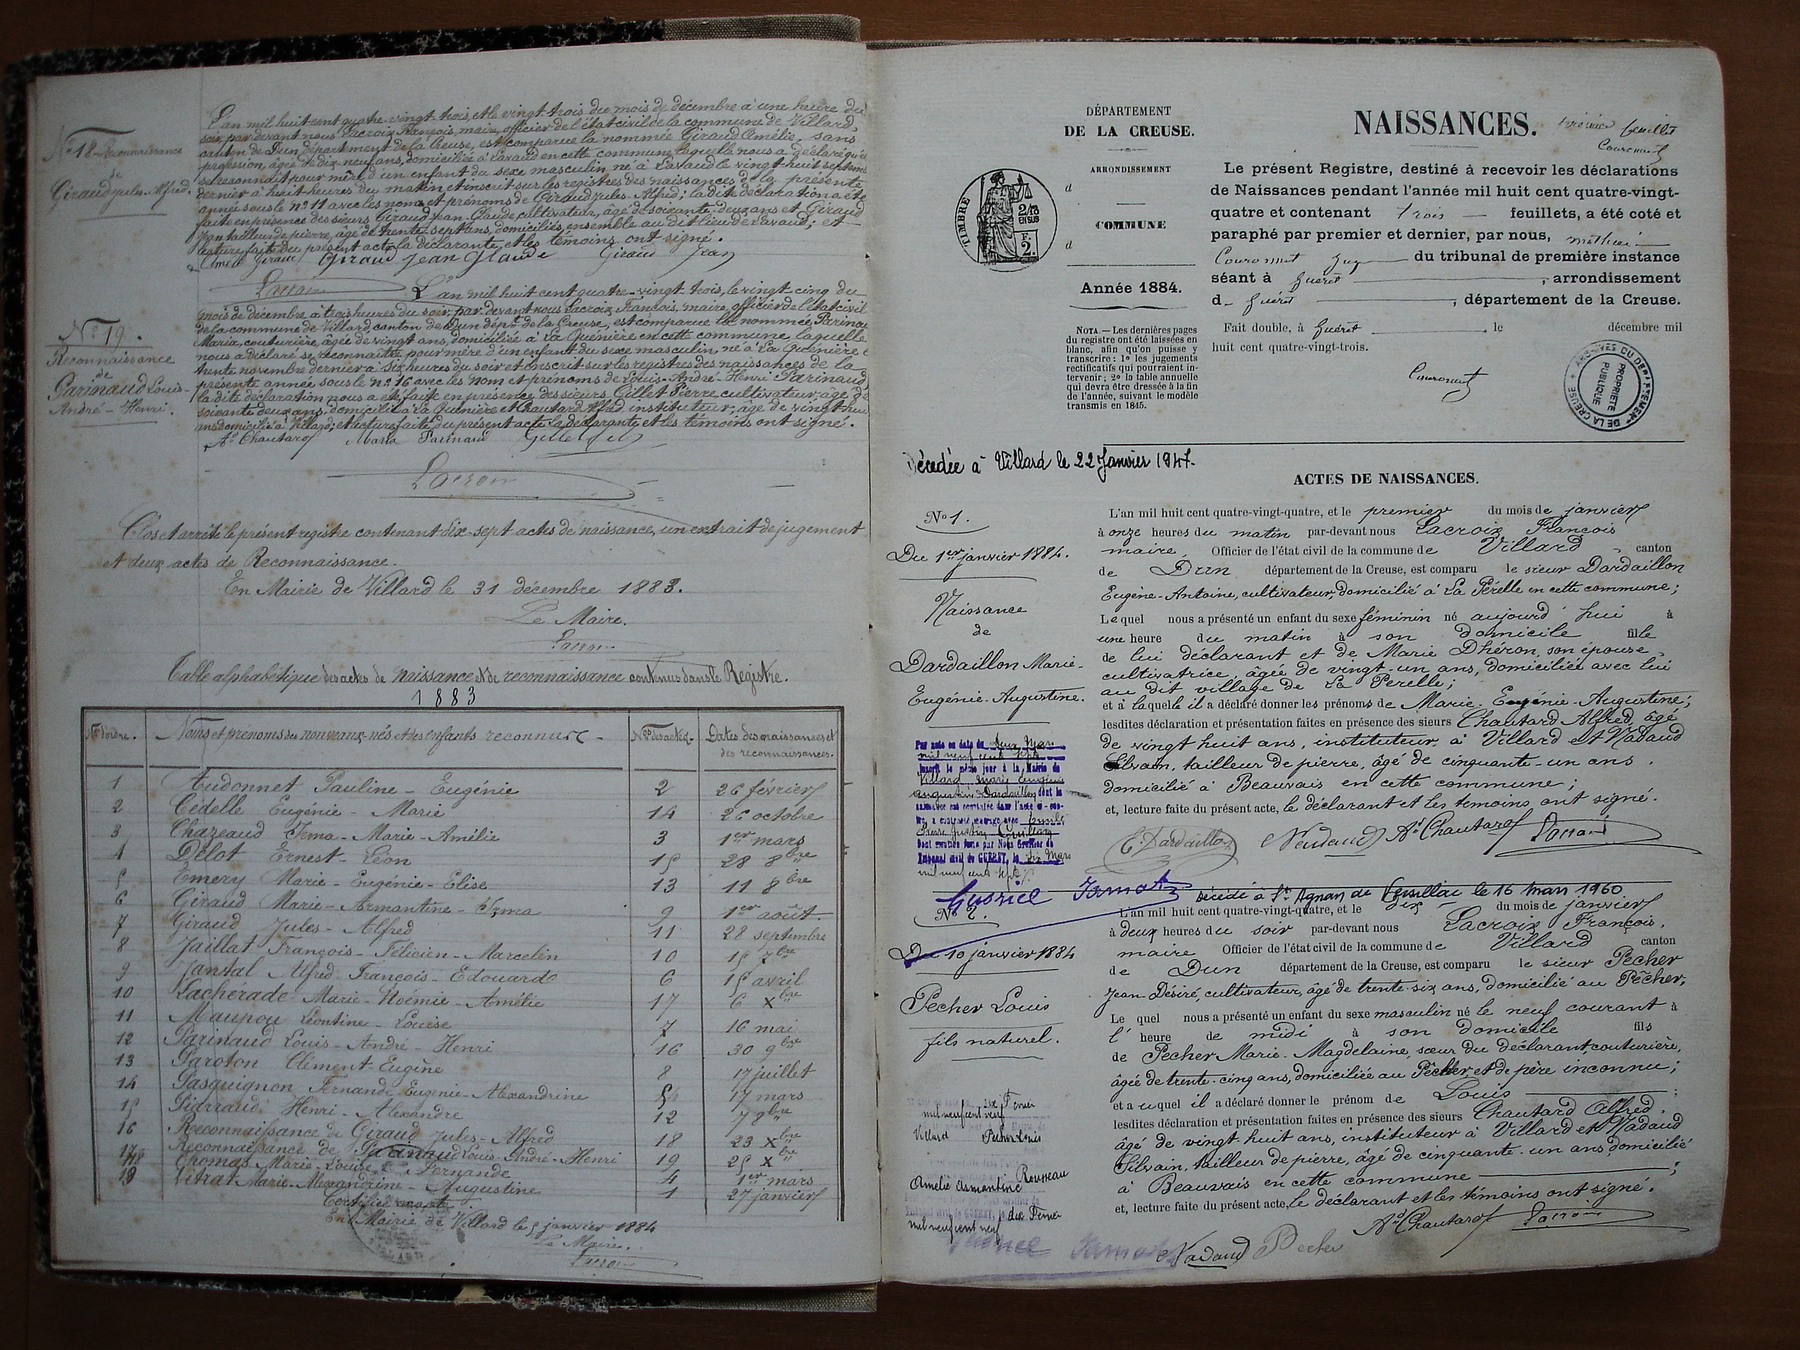 L'an mil huit cent quatre-vingt trois, et le vingt trois du mois de décembre à une heure du
soir, par devant nous Lacroix François, maire, officier de l'état civil de la commune de Villard,
canton de Dun département de la Creuse, est comparue la nommée Giraud Amélie, sans
profession, âgée de dix neuf ans, domiciliée à Lavaud en cette commune, laquelle nous a déclaré qu'elle
se reconnait pour mère d'un enfant du sexe masculin né à Lavaud le vingt huit septembre
dernier à huit heures du matin et inscrit sur les registres des naissances de la présente
année sous le nº 11 avec les nom et prénoms de Giraud Jules-Alfred; la dite déclaration a été
faite en présence des sieurs Giraud Jean-Glaude, cultivateur, âgé de soixante-deux ans et Giraud
Jean tailleur de pierre, âgé de trente-sept ans, domiciliés ensemble au dit lieu de Lavaud; et
lecture faite du présent acte, la déclarante, et les témoins ont signé.
Nº 18 Reconnaissance
de
Giraud Jules-Alfred.
Amélie Giraud Giraud Jean Glaude Giraud Jean
Lacroix
L'an mil huit cent quatre-vingt trois, le vingt-cinq du
mois de décembre à trois heures du soir, par devant nous Lacroix François, maire, officier de l'état civil
de la commune de Villard canton de Dun dépt de la Creuse, est comparue la nommée Parinaud
Maria, couturière, âgée de vingt ans, domiciliée à la Quénière en cette commune, laquelle
nous a déclaré se reconnaitre pour mère d'un enfant du sexe masculin, né à La Quénière le
trente novembre dernier à six heures du soir et inscrit sur les registres des naissances de la
présente année sous le nº 16 avec les nom et prénoms de Louis-André-Henri Parinaud,
la dite déclaration nous a été faite en présence des sieurs Gillet Pierre, cultivateur, âgé de
soixante deux ans, domicilié à La Quénière et Chautard Alfred instituteur, âgé de vingt huit
ans domicilié à Villard; et lecture faite du présent acte la déclarante et les témoins ont signé.
Nº 19.
Reconnaissance
de
Parinaud Louis-
André-Henri.
Ad Chautard Maria Parinaud Gillet
Lacroix
Clos et arrêté le présent registre contenant dix-sept actes de naissance, un extrait de jugement
et deux actes de Reconnaissance.
En Mairie de Villard le 31 décembre 1883.
Le Maire.
Lacroix
Table alphabétique des actes de naissance & de reconnaissance contenus dans le Registre.
1883
Nº d'ordre. Noms et prénoms des nouveaux-nés et des enfants reconnus Nos des actes Dates des naissances et des reconnaissances.
1 Audonnet Pauline-Eugénie 2 26 février
2 Cédelle Eugénie-Marie 14 26 octobre
3 Chazeaud Irma-Marie-Amélie 3 1er mars
4 Délot Ernest-Léon 15 28 8bre
5 Emery Marie-Eugénie-Elise 13 11 8bre
6 Giraud Marie-Armantine-Irma 9 1er août
7 Giraud Jules-Alfred 11 28 septembre
8 Jaillat François-Félicien-Marcelin 10 15 7bre
9 Jantal Alfred-François-Edouard 6 15 avril
10 Lachérade Marie-Noémie-Amélie 17 6 Xbre
11 Maupou Léontine-Louise 7 16 mai
12 Parinaud Louis-André-Henri 16 30 9bre
13 Paroton Clément Eugène 8 17 juillet
14 Pasquignon Fernande Eugénie-Alexandrine 5 17 mars
15 Piarraud Henri-Alexandre 12 7 8bre
16 Reconnaissance de Giraud Jules-Alfred 18 23 Xbre
17 Reconnaissance de Parinaud Louis-André-Henri 19 25 Xbre
18 Thomas Marie-Louise-Fernande 4 1er mars
19 Vitrat Marie-Alexandrine-Augustine 1 27 janvier
Certifié exacte
En Mairie de Villard le 5 janvier 1884
Le Maire.
Lacroix
DÉPARTEMENT
DE LA CREUSE.
ARRONDISSEMENT
d
COMMUNE
d
Année 1884.
NOTA. — Les dernières pages
du registre ont été laissées en
blanc, afin qu'on puisse y
transcrire : 1º les jugements
rectificatifs qui pourraient in-
tervenir ; 2º la table annuelle
qui devra être dressée à la fin
de l'année, suivant le modèle
transmis en 1845.
TIMBRE
2/10
EN SUS
F.
2.
NAISSANCES.
premier feuillet
Couronnet
Le présent Registre, destiné à recevoir les déclarations
de Naissances pendant l'année mil huit cent quatre-vingt-
quatre et contenant trois feuillets, a été coté et
paraphé par premier et dernier, par nous,
du tribunal de première instance
séant à Guéret, arrondissement
d Guéret, département de la Creuse.
Fait double, à Guéret le décembre mil
huit cent quatre-vingt-trois.
ARCHIVES DU DÉPARTEMENT DE LA CREUSE
PROPRIÉTÉ
PUBLIQUE
Décédée à Villard le 22 Janvier 1947.
ACTES DE NAISSANCES.
Nº 1.
Du 1er janvier 1884.
Naissance
de
Dardaillon Marie-
Eugénie-Augustine.
L'an mil huit cent quatre-vingt-quatre, et le premier du mois de janvier
à onze heures du matin par-devant nous Lacroix François
maire, Officier de l'état civil de la commune de Villard canton
de Dun département de la Creuse, est comparu le sieur Dardaillon
Eugène-Antoine, cultivateur, domicilié à La Pérelle en cette commune;
Lequel nous a présenté un enfant du sexe féminin né aujourd'hui à
une heure du matin à son domicile fille
de lui déclarant et de Marie Dhéron, son épouse
cultivatrice, âgée de vingt-un ans, domiciliée avec lui
au dit village de La Pérelle;
et à laquelle il a déclaré donner les prénoms de Marie-Eugénie-Augustine;
lesdites déclaration et présentation faites en présence des sieurs Chautard Alfred, âgé
de vingt huit ans, instituteur à Villard et Nadaud
Silvain, tailleur de pierre, âgé de cinquante-un ans,
domicilié à Beauvais en cette commune;
et, lecture faite du présent acte, le déclarant et les témoins ont signé.
E. Dardaillon Nadaud Ad Chautard Lacroix
Par acte en date du deux Mars
mil neuf cent sept
inscrit le même jour à la Mairie de
Villard Marie Eugénie
Augustine Dardaillon dont la
naissance est constatée dans l'acte ci-con-
tre, a contracté mariage avec
Dont mention faite par Nous Greffier du
Tribunal civil de GUÉRET, le dix Mars
mil neuf cent sept
décédé à St Agnan de Versillac le 16 mars 1960
Nº 2.
Du 10 janvier 1884
Pecher Louis
fils naturel.
L'an mil huit cent quatre-vingt-quatre, et le dix du mois de janvier
à deux heures du soir par-devant nous Lacroix François,
maire Officier de l'état civil de la commune de Villard canton
de Dun département de la Creuse, est comparu le sieur Pecher
Jean-Désiré, cultivateur, âgé de trente-six ans, domicilié au Pécher,
Le quel nous a présenté un enfant du sexe masculin né le neuf courant à
l'heure de midi à son domicile fils
de Pecher Marie-Magdelaine, sœur du déclarant, couturière,
âgée de trente-cinq ans, domiciliée au Pécher et de père inconnu;
et auquel il a déclaré donner le prénom de Louis ;
lesdites déclaration et présentation faites en présence des sieurs Chautard Alfred,
âgé de vingt huit ans, instituteur à Villard et Nadaud
Silvain, tailleur de pierre, âgé de cinquante-un ans domicilié
à Beauvais en cette commune ;
et, lecture faite du présent acte, le déclarant et les témoins ont signé.
Ad Chautard Lacroix
Nadaud Pecher
mil neuf cent neuf
Villard Pecher Louis
Amélie Armentine Rousseau
mil neuf cent neuf